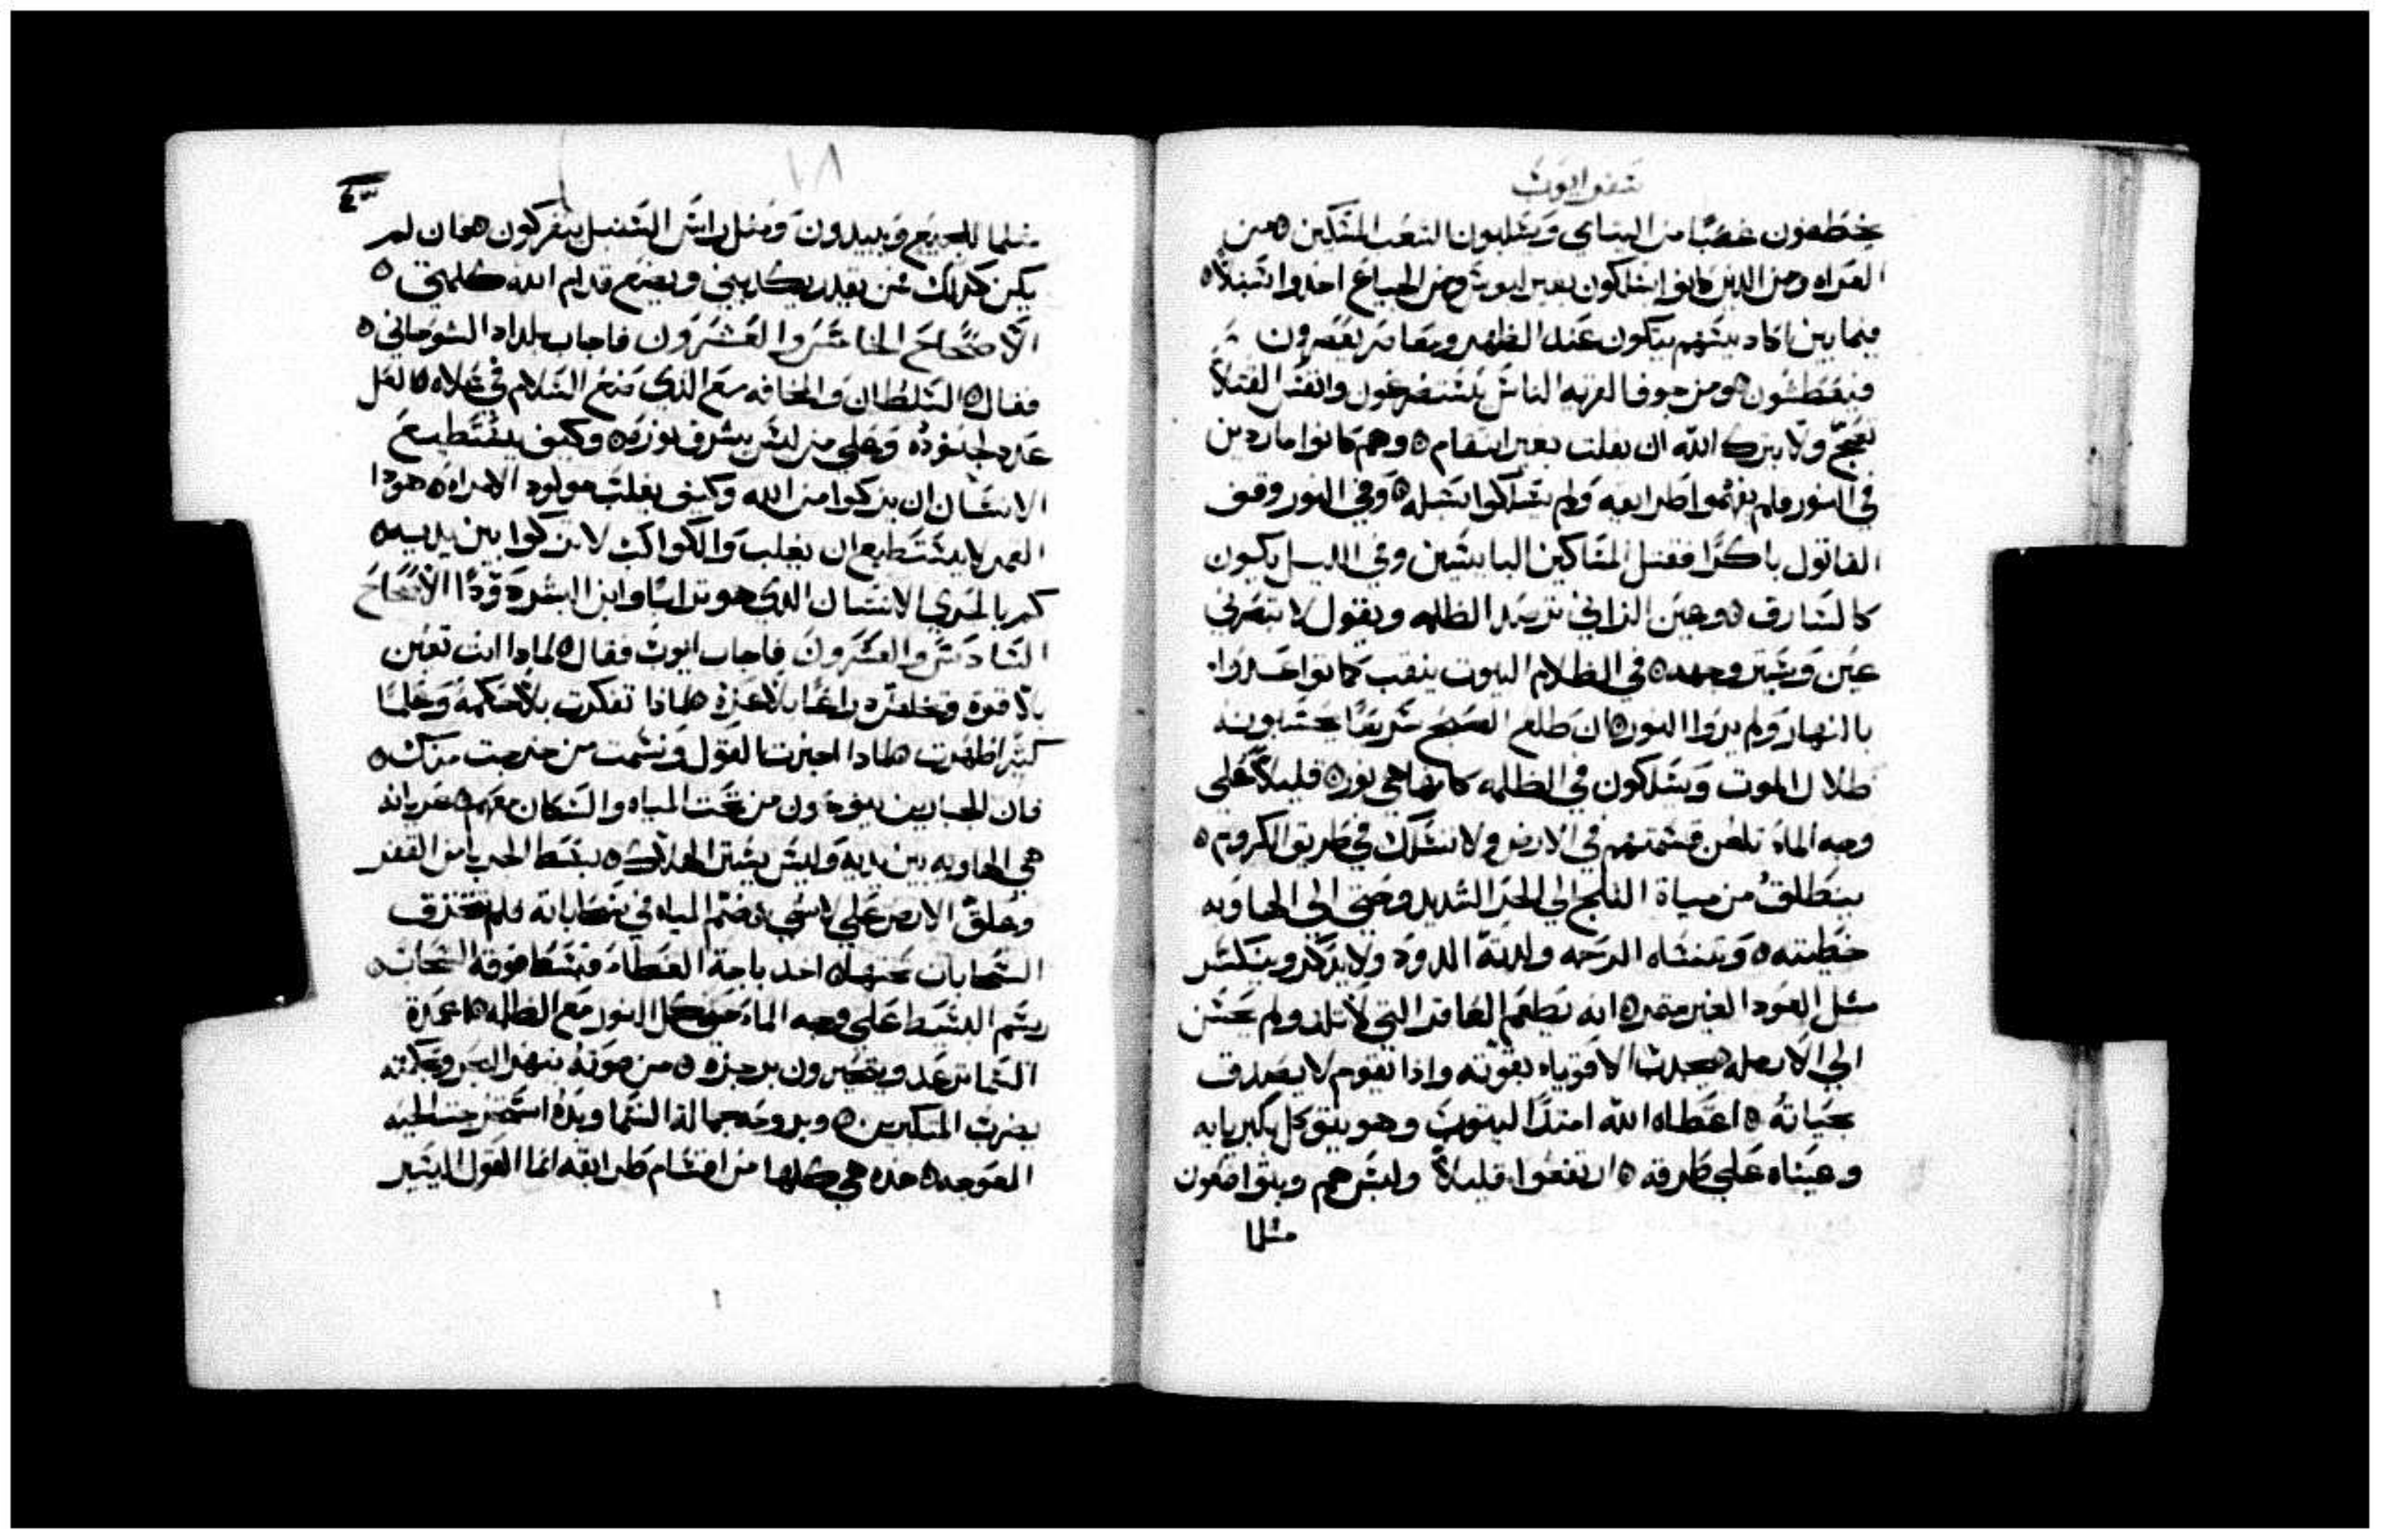 سفر ايوب
يخطفون غصبًا من اليتامي ويسلبون الشعب المسكين ٥ من
العراه ومن الذين كانوا يسلكون بغير لبوس ومن الجياع اخدوا السنبل ٥
فيما بين اكاديسهم يتكون عند الظهر ومعاصر يعصرون
فيعطشون ٥ ومن جوف القريه الناس يستضرعون وانفس القتلا
تعج ولا يترك الله ان يفلت بغير انتقام ٥ وهم كانوا ماردين
في النور فلم يفهموا طرايقه ولم يسلكوا سبله ٥ وفي النور وقف
القاتول باكرًا فقتل المساكين البايسين وفي الليل يكون
كالسارق ٥ وعين الزاني ترصد الظلمه ويقول لا تبصرني
عين ويستر وجهه ٥ في الظلام البيوت ينقب كما تواعدوا
بالنهار ولم يروا النور ٥ ان طلع الصبح سريعًا يحسبونه
ظلال الموت ويسلكون في الظلمه كانها هي نور ٥ قليلاً علي
وجه الماء تلعن قسمتهم في الارض ولا تسلك في طريق الكروم ٥
ينطلق من مياة الثلج الي الحر الشديد وحتي الي الهاويه
خطيته ٥ وتنساه الرحمه ولذته الدود ولا يذكر وينكسر
مثل العود الغير متمر ٥ انه يطعم العاقر التي لا تلد ولم يحسن
الي الارمله ٥ يجدب الاقوياء بقوته واذا تقوم لا يصدق
بحياته ٥ اعطاه الله امتدًا ليتوب وهو يتوكل بكبريايه
وعيناه علي طرقه ٥ ارتفعوا قليلاً وليس هم ويتواضعون
مثلما
١٨
٤٣
مثلما الجميع ويبيدون ومثل راس السنبل يتفركون ٥ فان لم
يكن كذلك فمن يقدر يكدبني ويضع قدام الله كلمتي ٥
الاصحاح الخامس والعشرون فاجاب بلداد الشوحاني ٥
فقال ٥ السلطان والمخافه مع الذي صنع السلام في علاه ٥ العل
عدد لجنوده وعلي من ليس يشرق نوره ٥ وكيف يستطيع
الانسان ان يزكوا من الله وكيف يغلب مولود الامراه ٥ هودا
القمر لا يستطيع ان يغلب والكواكب لا تزكوا بين يديه ٥
كم بالحري الانسان الذي هو ترابًا وابن البشر دودًا الاصحاح
السادس والعشرون فاجاب ايوب فقال ٥ لماذا انت تعين
بلا قوة وتخلص دراعًا بلا عزة ٥ ماذا تفكرت بلا حكمه وحلمًا
كثيرًا ظهرت ٥ ماذا اخبرت القول ونسمت من خرجت منك ٥
فان الجبارين ينوحون من تحت المياه والسكان معهم ٥ عريانه
هي الهاويه بين يديه وليس يستر الهلاك ٥ يبسط الجربيا من القفر
وعلق الارض علي لاشي ٥ ضم المياه في سحاباته فلم تنخرق
السحابات تحتها ٥ اخد باحة الغطاء فبسط فوقه السحاب ٥
رسم البسيط علي وجه الماء حتي كل النور مع الظلمه ٥ اعمدة
السما ترعد ويتحيرون برجزه ٥ من صوته ينهز البحر وبحكمته
يضرب المتكبرين ٥ وبروحه جمال السما ويده استمخضت الحيه
المعوجه ٥ هذه هي كلها من اقسام طرايقه انما القول اليسير